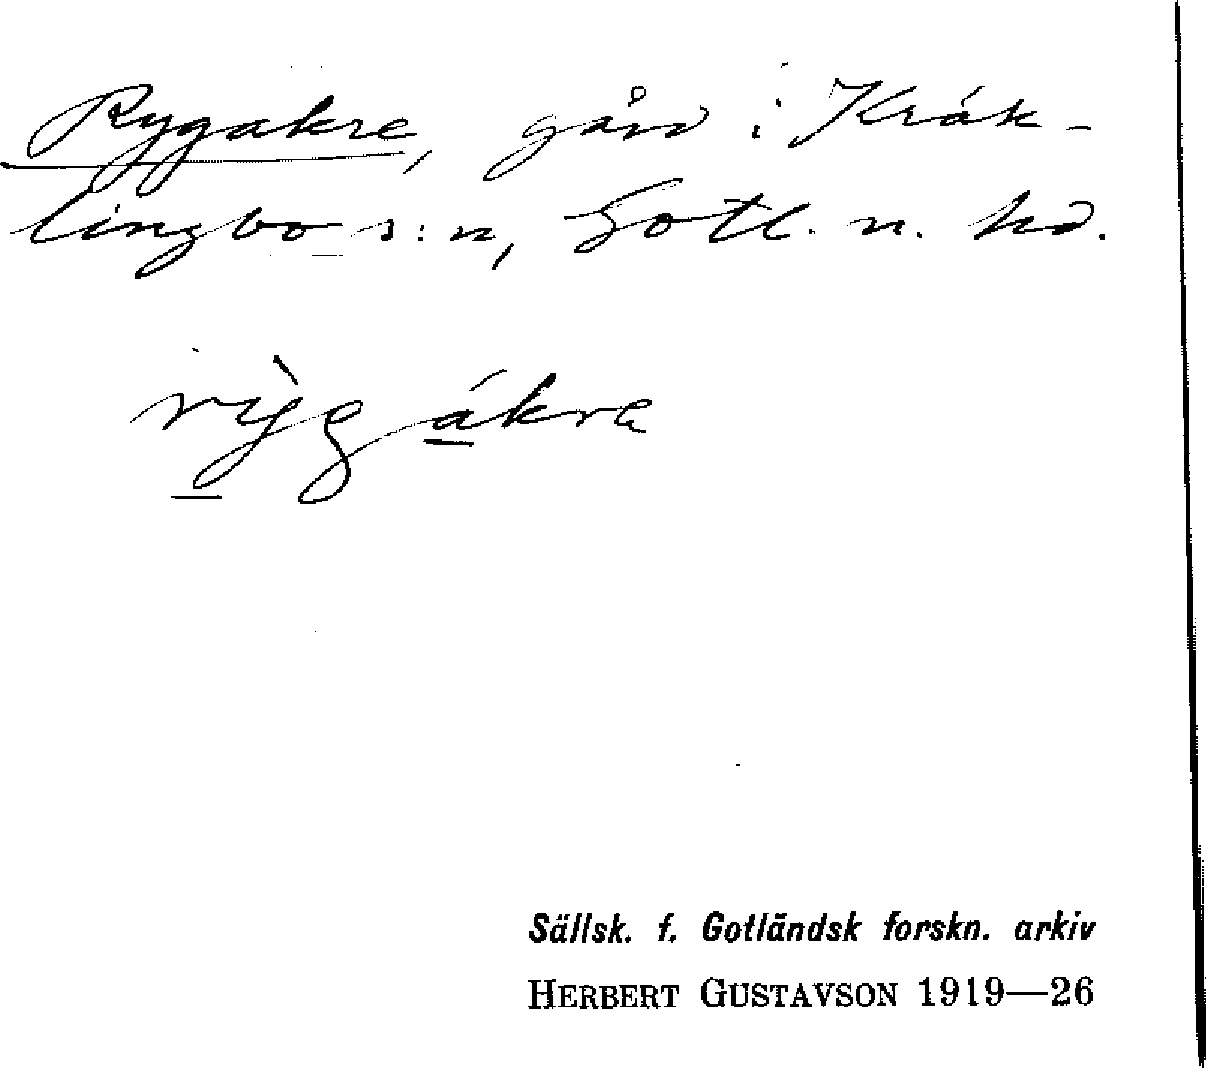 Rygakre, gård i Kräk-
lingbo s:n, Gotl. n. hd.
rỳgákrა
Sällsk. f. Gotländsk forskn. arkiv
HERBERT GUSTAVSON 1919—26